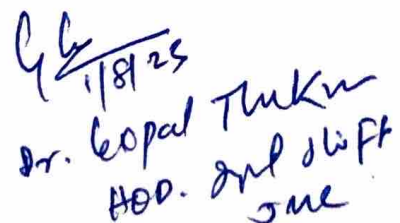 1/8/25
Dr. Gopal Thakur
HOD. 2nd shift